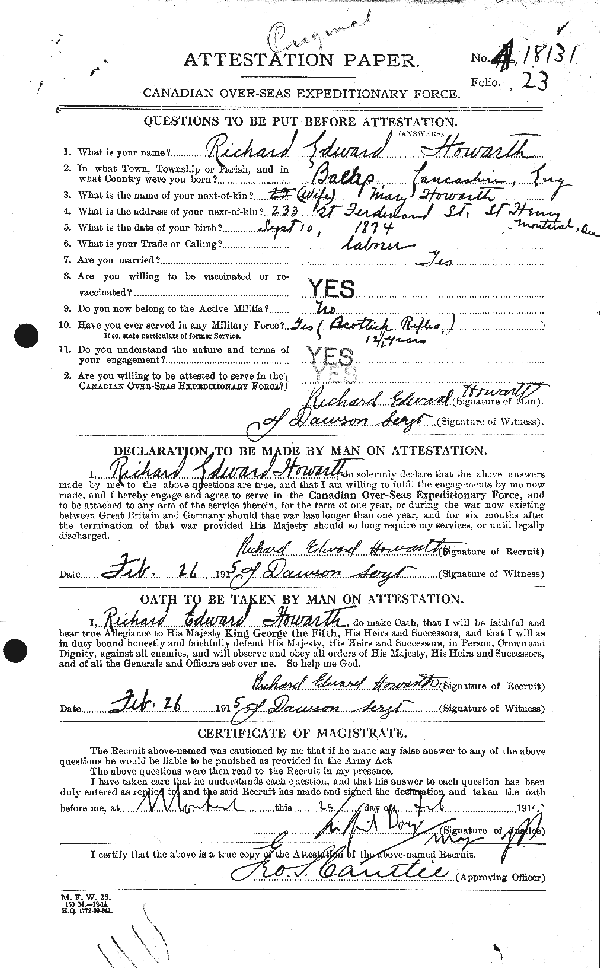 Original
ATTESTATION PAPER.
No. A 18131
Folio. 23
CANADIAN OVER-SEAS EXPEDITIONARY FORCE.
QUESTIONS TO BE PUT BEFORE ATTESTATION.
(ANSWERS)
1. What is your name? Richard Edward Howarth
2. In what Town, Township or Parish, and in
what Country were you born? Lancashire, Eng
3. What is the name of your next-of-kin? (Wife) Mary Howarth
4. What is the address of your next-of-kin? 233 St Ferdinand St. St Henry
Montreal, Que
5. What is the date of your birth? Sept 10, 1874
6. What is your Trade or Calling? Laborer
7. Are you married? Yes
8. Are you willing to be vaccinated or re-
vaccinated? YES
9. Do you now belong to the Active Militia? No
10. Have you ever served in any Military Force? Yes (Scottish Rifles)
If so, state particulars of former Service. 12 years
11. Do you understand the nature and terms of
your engagement? YES
2. Are you willing to be attested to serve in the
CANADIAN OVER-SEAS EXPEDITIONARY FORCE? YES
Richard Edward Howarth (Signature of Man).
Dawson Sergt (Signature of Witness).
DECLARATION TO BE MADE BY MAN ON ATTESTATION.
I, Richard Edward Howarth, do solemnly declare that the above answers
made by me to the above questions are true, and that I am willing to fulfil the engagements by me now
made, and I hereby engage and agree to serve in the Canadian Over-Seas Expeditionary Force, and
to be attached to any arm of the service therein, for the term of one year, or during the war now existing
between Great Britain and Germany should that war last longer than one year, and for six months after
the termination of that war provided His Majesty should so long require my services, or until legally
discharged.
Richard Edward Howarth (Signature of Recruit)
Date Feb. 26 1915 Dawson Sergt (Signature of Witness)
OATH TO BE TAKEN BY MAN ON ATTESTATION.
I, Richard Edward Howarth, do make Oath, that I will be faithful and
bear true Allegiance to His Majesty King George the Fifth, His Heirs and Successors, and that I will as
in duty bound honestly and faithfully defend His Majesty, His Heirs and Successors, in Person, Crown and
Dignity, against all enemies, and will observe and obey all orders of His Majesty, His Heirs and Successors,
and of all the Generals and Officers set over me. So help me God.
Richard Edward Howarth (Signature of Recruit)
Date Feb. 26 1915 Dawson Sergt (Signature of Witness)
CERTIFICATE OF MAGISTRATE.
The Recruit above-named was cautioned by me that if he made any false answer to any of the above
questions he would be liable to be punished as provided in the Army Act.
The above questions were then read to the Recruit in my presence.
I have taken care that he understands each question, and that his answer to each question has been
duly entered as replied to, and the said Recruit has made and signed the declaration and taken the oath
before me, at Montreal this 26 day of Feb 191
(Signature of Justice)
I certify that the above is a true copy of the Attestation of the above-named Recruit.
Geo. S. Cantlie (Approving Officer)
M. F. W. 23.